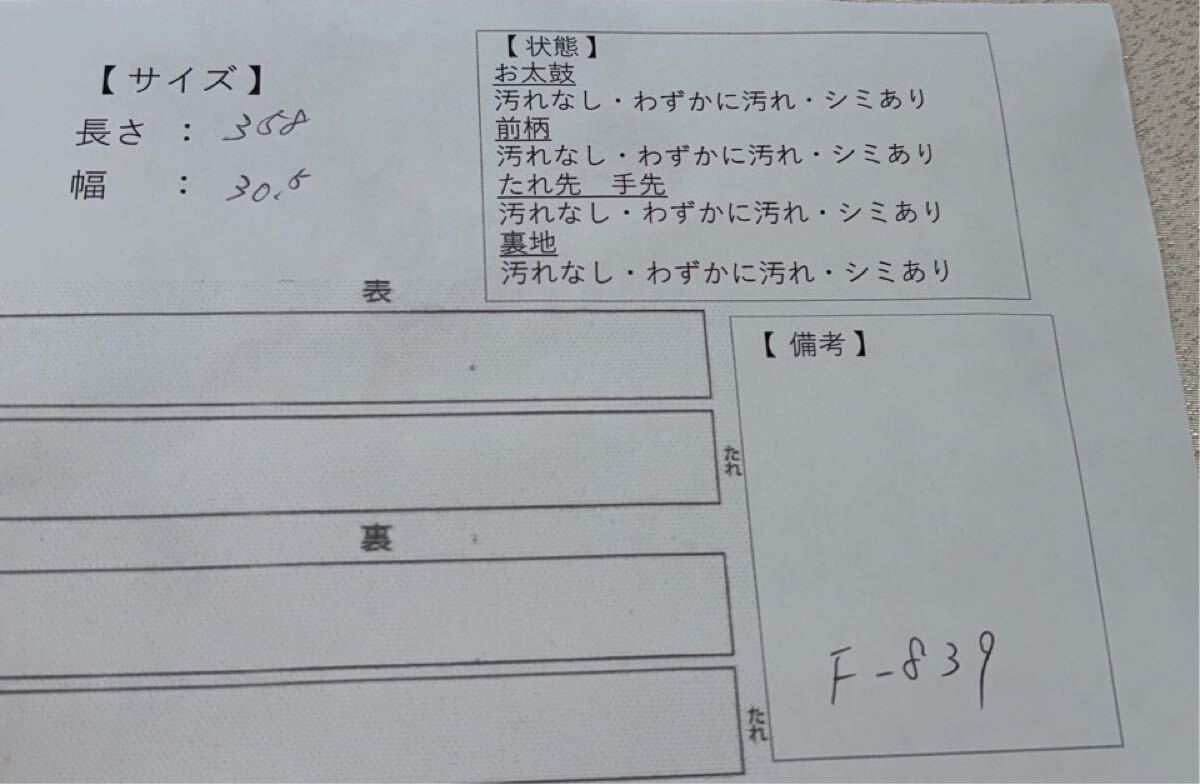 【 サイズ 】
長さ : 358
幅 : 30.5
【 状態 】
お太鼓
汚れなし・わずかに汚れ・シミあり
前柄
汚れなし・わずかに汚れ・シミあり
たれ先 手先
汚れなし・わずかに汚れ・シミあり
裏地
汚れなし・わずかに汚れ・シミあり
表
たれ
裏
たれ
【 備考 】
F-839